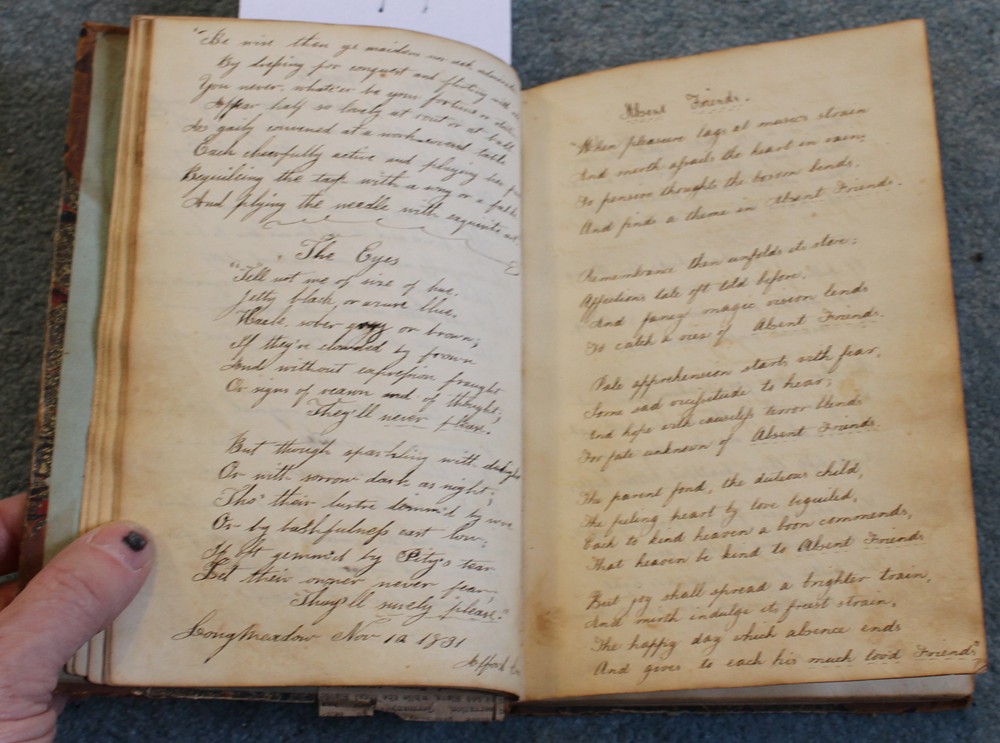 "Be wise then ye maidens nor seek admiration
By dressing for conquest and flirting with
You never, whate'er be your fortune or
Appear half so lovely at rout or at ball
As gaily convened at a work-covered table
Each cheerfully active and plying her
Beguiling the task with a song or a
And plying the needle with exquisite art.
The Eyes
"Tell not me of size of hue,
Jetty black, or azure blue,
Hazle, sober grey or brown;
If they're clouded by frown
And without expression fraught
Or signs of reason and of thought;
They'll never please.
But though sparkling with delight
Or with sorrow dark as night;
Tho' their lustre dimm'd by
Or by bashfulness cast low;
If oft gemm'd by Pity's tear
Let their owner never fear,
They'll surely please."
Longmeadow Nov 1831
Absent Friends.
"When pleasure lags at music's strain
And mirth assails the heart in vain;
To pensive thoughts the bosom bends.
And finds a theme in Absent Friends.
Remembrance then unfolds its store;
Affections tale oft told before.
And fancy magic vision lends
To catch a view of Absent Friends.
Pale apprehension starts with fear,
Some sad vicissitude to hear;
And hope with causeless terror blends
For fate unknown of Absent Friends.
The parent fond, the duteous child,
The feeling heart by love beguiled,
Each to kind heaven a boon commends,
That heaven be kind to Absent Friends
But joy shall spread a brighter train,
And mirth indulge its freest strain,
The happy day which absence ends
And gives to each his much lov'd Friends"